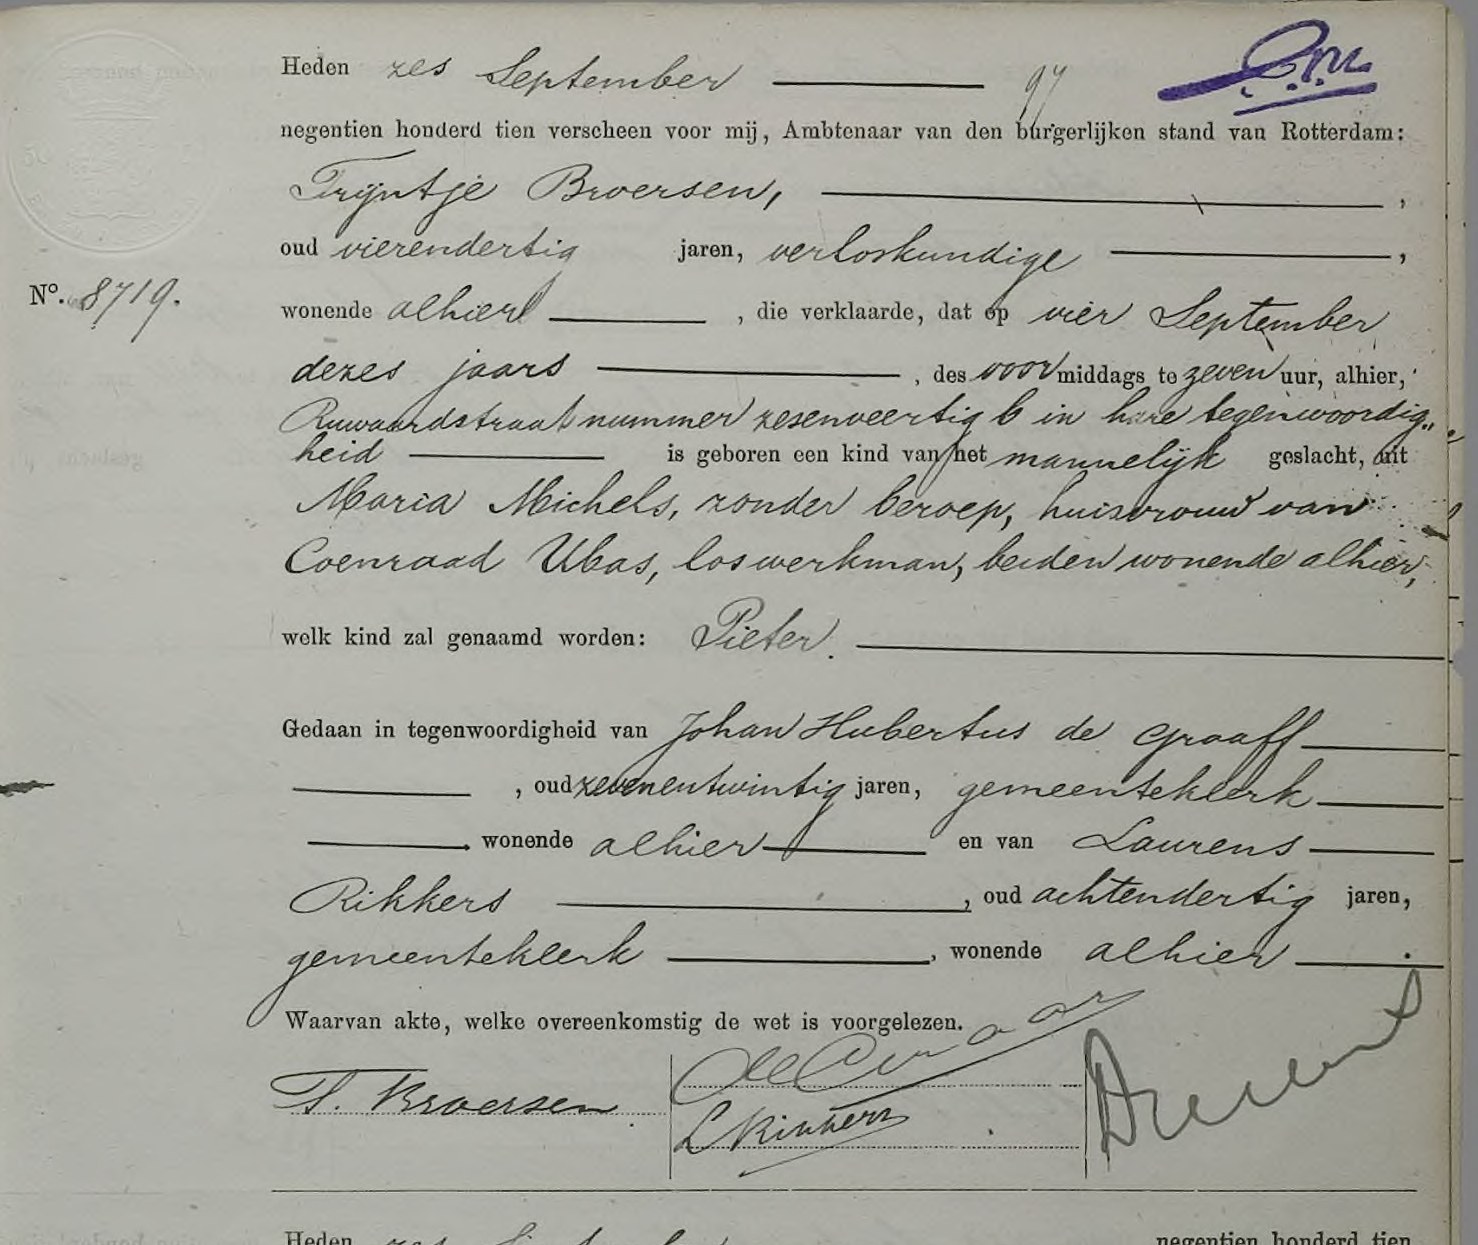 Heden zes September
negentien honderd tien verscheen voor mij, Ambtenaar van den burgerlijken stand van Rotterdam:
Trijntje Broersen, ,
oud vierendertig jaren, verloskundige ,
No. 8719.
wonende alhier , die verklaarde, dat op vier September
dezes jaars , des voor middags te zeven uur, alhier,
Ruwaardstraat nummer zesenveertig b in hare tegenwoordig„
heid is geboren een kind van het mannelijk geslacht, uit
Maria Michels, zonder beroep, huisvrouw van
Coenraad Ubas, los werkman, beiden wonende alhier,
welk kind zal genaamd worden: Pieter.
Gedaan in tegenwoordigheid van Johan Hubertus de Graaff
, oud zevenentwintig jaren, gemeenteklerk
wonende alhier en van Laurens
Rikkers , oud achtendertig jaren,
gemeenteklerk , wonende alhier .
Waarvan akte, welke overeenkomstig de wet is voorgelezen.
T. Broersen
L Rikkers
Heden zes September negentien honderd tien